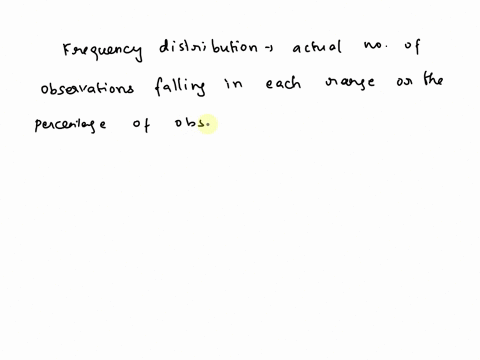 Frequency distribution → actual no. of
observations falling in each range or the
percentage of obs.